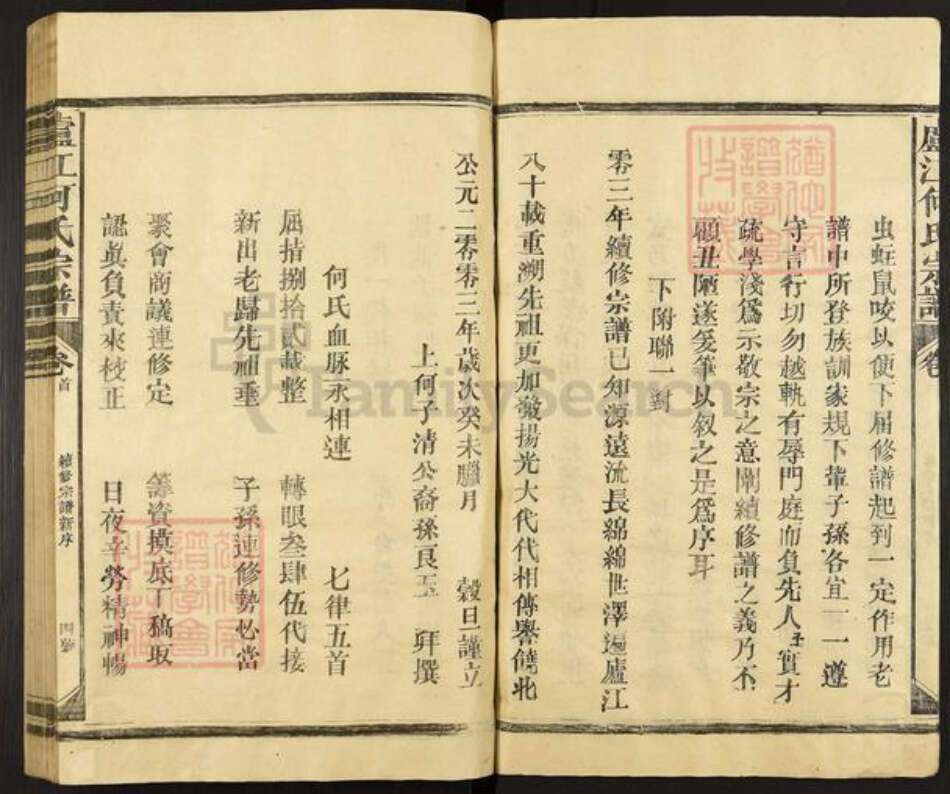 廬江何氏宗譜
卷
虫蛀鼠咬以便下屆修譜起到一定作用老
譜中所登族訓家規下輩子孫各宜一一遵
守言行切勿越軌有辱門庭而負先人 實才
疏學淺爲示敬宗之意闡續修譜之義乃不
顧丑陋遂笺筆以叙之是爲序耳
下附聯一對
零三年續修宗譜已知源遠流長綿綿世澤遍廬江
八十載重溯先祖更加發揚光大代代相傳譽饒北
公元二零零三年歲次癸未臘月 穀旦謹立
上何子清公裔孫良玉 拜撰
何氏血脉永相連 七律五首
屈指捌拾貳載整 轉眼叁肆伍代接
新出老歸先祖垂 子孫連修勢必當
聚會商議連修定 籌資摸底丁稿取
認真負責來校正 日夜辛勞精神暢
廬江何氏宗譜
卷首
續修宗譜新序
四
FamilySearch